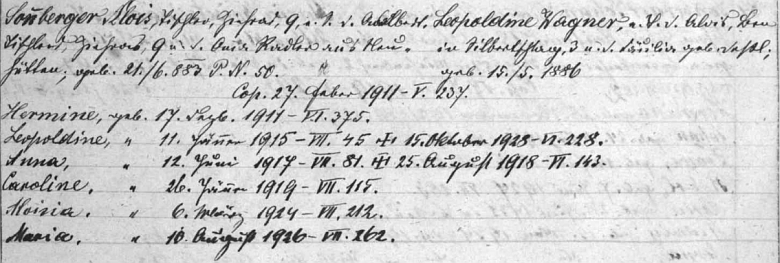 Sonnberger Alois, Tischler, Ziehrad, 9, e. S. d. Adalbert, Leopoldine Wagner, e. T. d. Alois,
Tischlers, Ziehrad, 9 u. d. Anna Stadler aus Neu- in Silbertschlag, 3 u. d. Cäcilia geb.
hütten; geb. 21./6. 883 P. N. 50. " geb. 15./5. 1886
Cop. 27. Feber 1911 - V. 237.
Hermine, geb. 17. Dezb. 1911 - VI. 375.
Leopoldine, " 11. Jänner 1915 - VII. 45 ✠ 15. Oktober 1928 - VI. 228.
Anna, " 12. Juni 1917 - VII. 81. ✠ 25. August 1918 - VI. 143.
Caroline, " 26. Jänner 1919 - VII. 115.
Aloisia. " 6. März 1924 - VII. 212.
Maria. " 10. August 1926 - VII. 262.